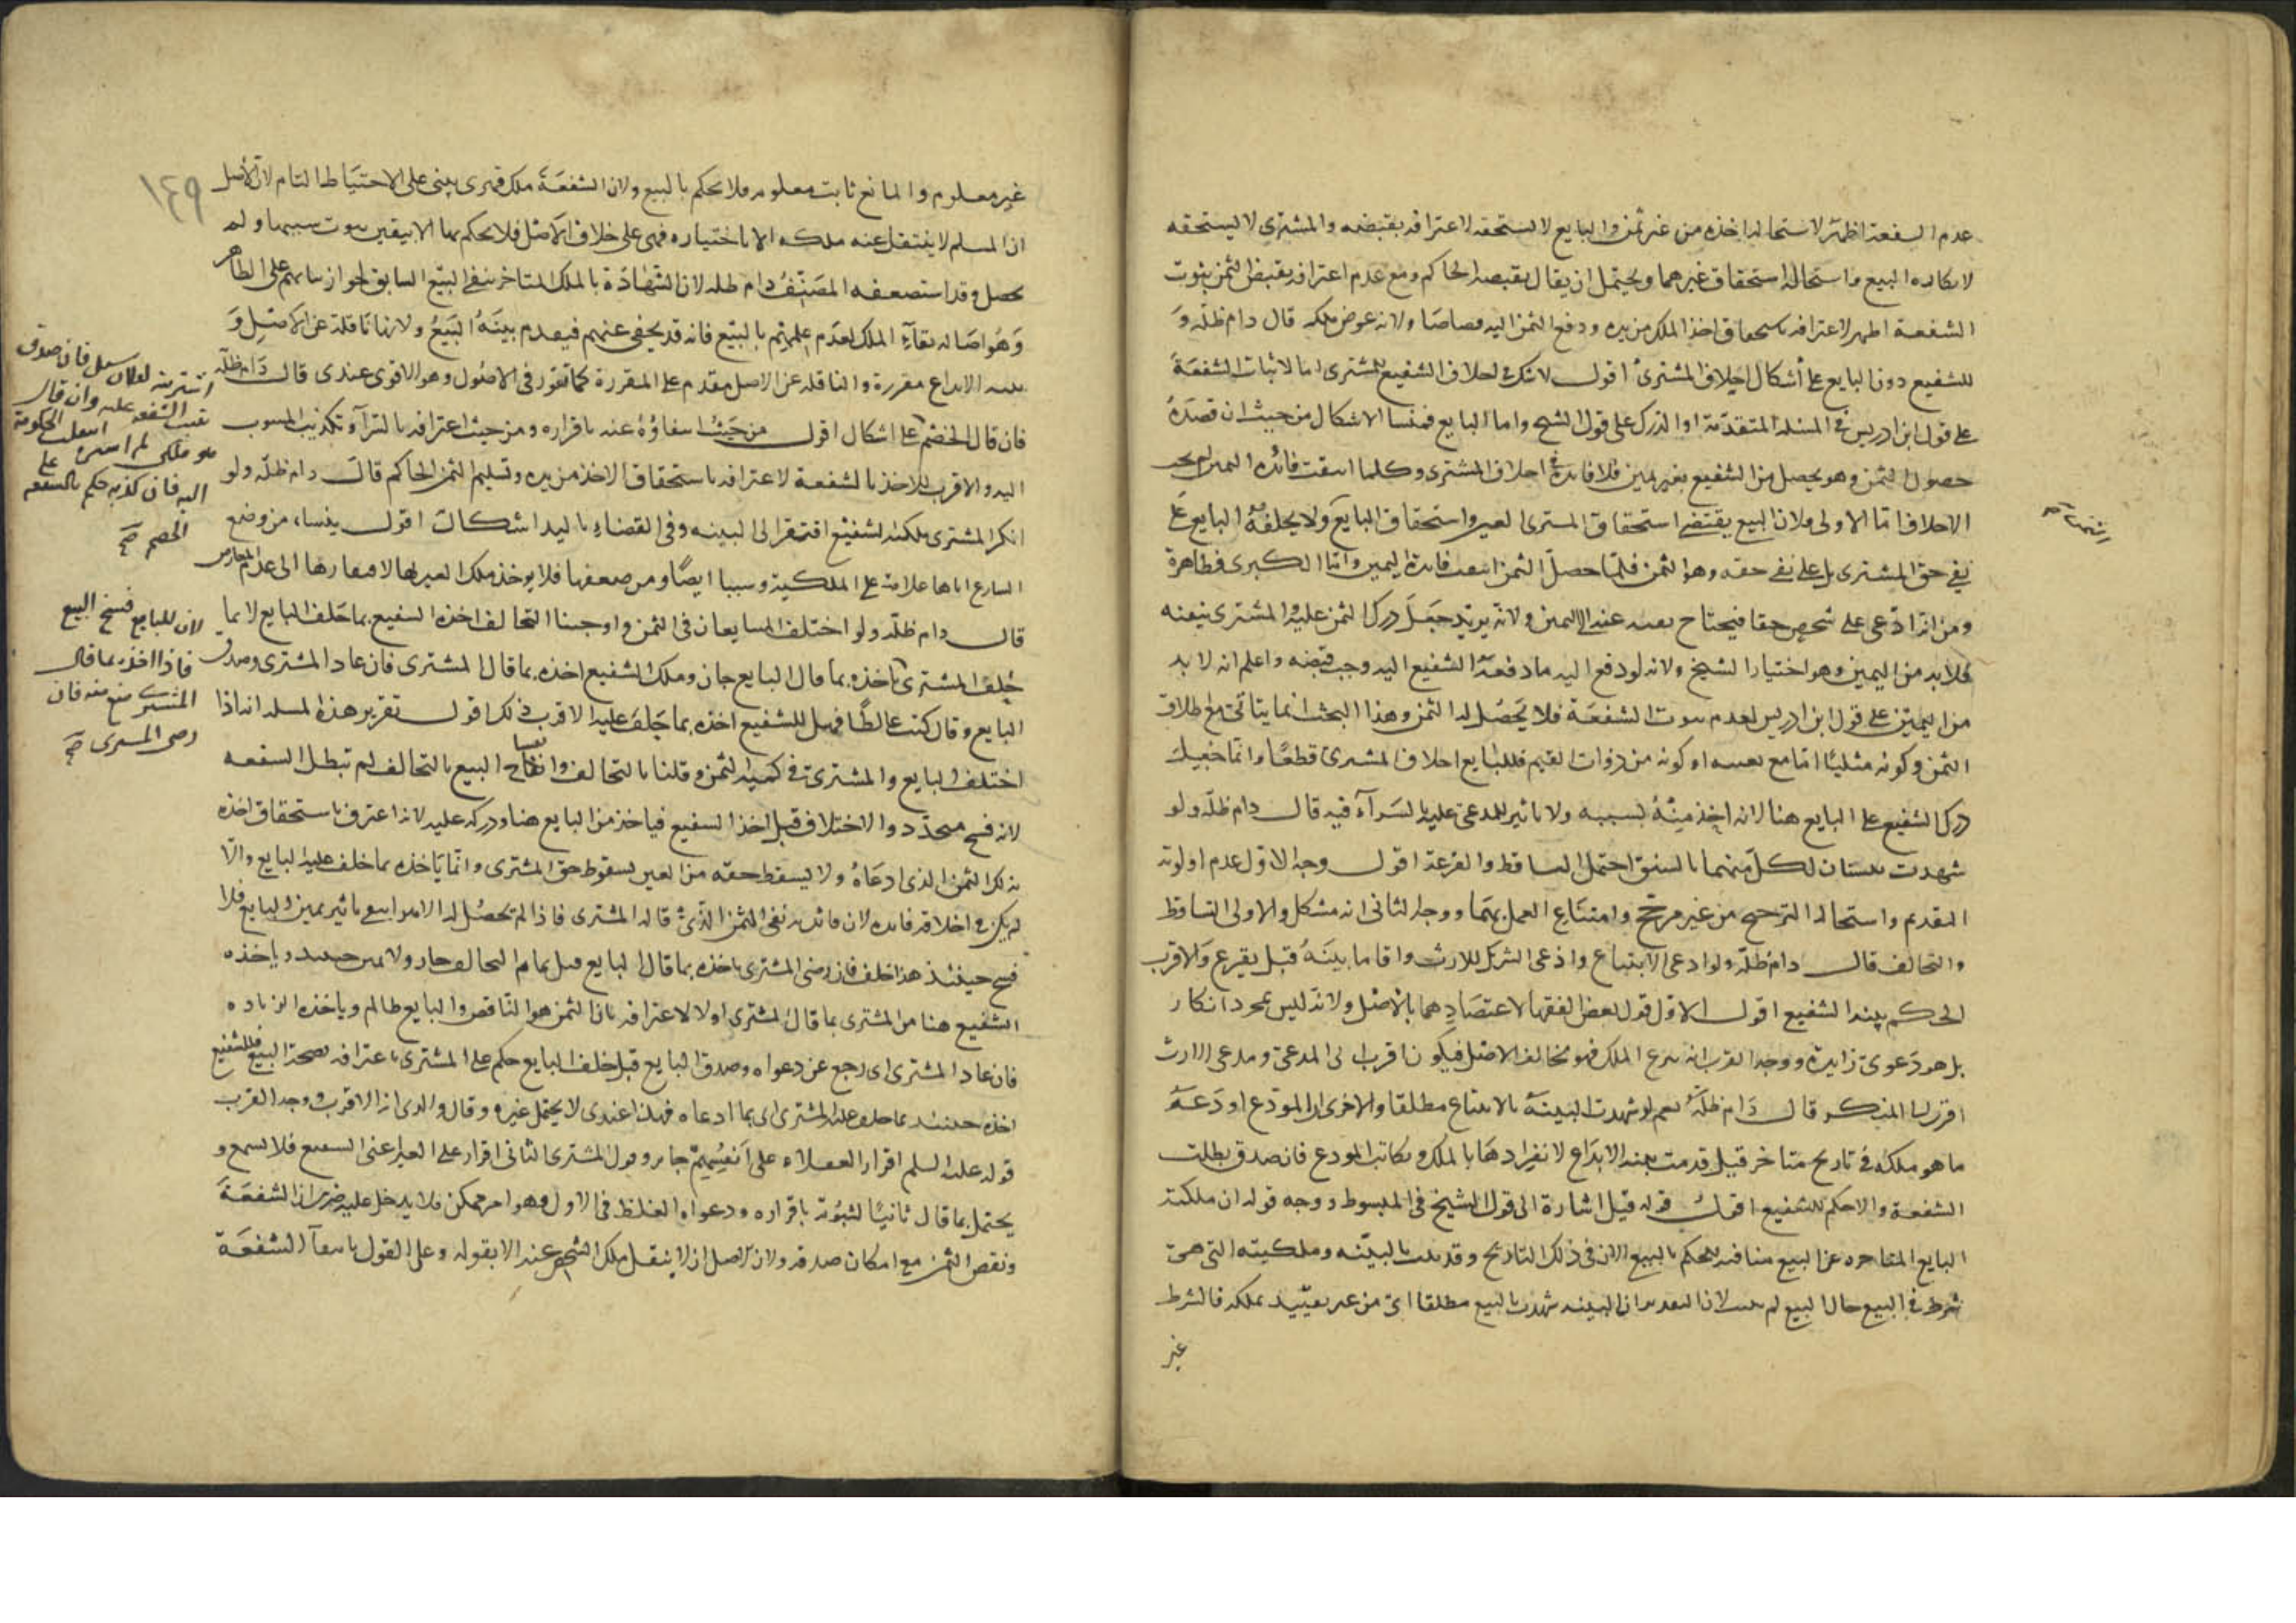 عدم الشفعة اظهر لاستحالة اخذه من غير ثمن والبايع لا يستحقه لاعترافه بقبضه والمشترى لا يستحقه
لانكاره البيع واستحالة استحقاق غيرهما ويحتمل ان يقال يقبضه الحاكم ومع عدم اعترافه بقبض الثمن ثبوت
الشفعة اظهر لاعترافه باستحقاق اخذ الملك من يده ودفع الثمن اليه قصاصا ولانه عوض ملكه قال دام ظله و
للشفيع دون البايع على اشكال احلاف المشترى اقول لا شك فى احلاف الشفيع للمشترى اما لاثبات الشفعة
على قول ابن ادريس فى المسئلة المتقدمة او الدرك على قول الشيخ واما البايع فمنشا الاشكال من حيث ان قصده
حصول الثمن وهو يحصل من الشفيع بغير يمين فلا فايدة فى احلاف المشترى وكلما انتفت فائدة اليمين لم يجب
الاحلاف اما الاولى فلان البيع يقتضى استحقاق المشترى العين واستحقاق البايع ولا يحلفه البايع على
نفى حق المشترى بل على نفى حقه وهو الثمن فلما حصل الثمن انتفت فايدة اليمين واما الكبرى فظاهرة
ومن انه ادعى على شخص حقا فيحتاج نفيه عنه الى اليمين ولانه يريد جعل درك الثمن عليه والمشترى ينفيه
فلابد من اليمين وهو اختيار الشيخ ولانه لو دفع اليه ما دفعه الشفيع اليه وجب قبضه واعلم انه لا بد
من اليمين على قول ابن ادريس لعدم ثبوت الشفعة فلا يحصل له الثمن وهذا البحث انما يتاتى مع اطلاق
الثمن وكونه مثليا اما مع تعينه او كونه من ذوات القيم فللبايع احلاف المشترى قطعا وانما جعل
درك الشفيع على البايع هنا لانه اخذ منه بسببه ولا تاثير للمدعى عليه الشراء فيه قال دام ظله ولو
شهدت بينتان لكل منهما بالسبق احتمل التساقط والقرعة اقول وجه الاول عدم اولوية
التقديم واستحالة الترجيح من غير مرجح وامتناع العمل بهما ووجه الثانى انه مشكل والاولى التساقط
والتحالف قال دام ظله ولو ادعى الابتياع وادعى الشريك الارث واقاما بينة قيل يقرع والاقرب
الحكم ببينة الشفيع اقول الاول قول بعض الفقها لاعتضادهما بالاصل ولانه ليس بمجرد انكار
بل هو دعوى زايدة ووجه القرب انه يدعى الملك فهو مخالف الاصل فيكون اقرب الى المدعى ومدعى الارث
اقرب الى المنكر قال دام ظله نعم لو شهدت البينة بالابتياع مطلقا والاخرى ان المودع اودعه
ما هو ملكه فى تاريخ متاخر قيل قدمت بينة الايداع لانفرادها بالملك ويكاتب المودع فان صدق بطلت
الشفعة والا حكم للشفيع اقول قوله قيل اشارة الى قول الشيخ فى المبسوط ووجه قوله ان ملكية
البايع المتاخرة عن البيع منافية للحكم بالبيع الان فى ذلك التاريخ وقد ثبت بالبينة وملكيته التى هى
شرط فى البيع حال البيع لم يثبت لان التقدير ان البينة شهدت بالبيع مطلقا اى من غير تقييد بملكه فالشرط
غير
١٤٩
غير معلوم والمانع ثابت معلوم فلا يحكم بالبيع ولان الشفعة ملك قهرى يبنى على الاحتياط التام لان الاصل
ان المسلم لا ينتقل عنه ملكه الا باختياره فهى على خلاف الاصل فلا يحكم بها الا بيقين ثبوت سببها ولم
يحصل وقد استضعفه المصنف دام ظله لان الشهادة بالملك المتاخر ينفى البيع السابق لجواز بنائهم على الظاهر
وهو اصالة بقاء الملك لعدم علمهم بالبيع فانه قد يخفى عنهم فيقدم بينة البيع ولانها ناقلة عن الاصل و
بينة الايداع مقررة والناقلة عن الاصل مقدم على المقررة كما تقرر فى الاصول وهو الاقوى عندى قال دام ظله
فان قال الخصم على اشكال اقول من حيث انتفاؤه عنه باقراره ومن حيث اعترافه بالشراء وتكذيب المنسوب
اليه والاقرب للاخذ بالشفعة لاعترافه باستحقاق الاخذ من يده وتسليم الثمن الحاكم قال دام ظله ولو
انكر المشترى ملكية الشفيع افتقر الى البينة وفى القضاء باليد اشكال اقول ينشا من وضع
الشارع اياها علامة على الملكية وسببا ايضا ومن ضعفها فلا يوخذ ملك الغير بها لافتقارها الى عدم المعارض
قال دام ظله ولو اختلف المتبايعان فى الثمن واوجبنا التحالف اخذه الشفيع بما حلف البايع لا بما
حلف المشترى ياخذه بما قال البايع جاز وملك الشفيع اخذه بما قال المشترى فان عاد المشترى وصدق
البايع وقال كنت غالطا فهل للشفيع اخذه بما حلف عليه الاقرب ذلك اقول تقرير هذه المسئلة انه اذا
اختلف البايع والمشترى فى كمية الثمن وقلنا بالتحالف وانفساخ البيع بالتحالف لم تبطل الشفعة
لانه فسخ متجدد والاختلاف قبل اخذ الشفيع فياخذ من البايع هنا ودركه عليه لانه اعترف باستحقاق اخذه
بذلك الثمن الذى ادعاه ولا يسقط حقه من العين بسقوط حق المشترى وانما ياخذه بما حلف عليه البايع والا
لم يكن فى احلافه فايدة لان فائدته نفى الثمن الذى قاله المشترى فاذا لم يحصل له الا هو انتفى تاثير يمين البايع فلا
فسخ حينئذ هذا خلف فان رضى المشترى ياخذه بما قال البايع قبل تمام التحالف جاز ولا يمين حينئذ وياخذه
الشفيع هنا من المشترى بما قال المشترى اولا لاعترافه بان الثمن هو الناقص والبايع ظالم وياخذه الزيادة
فان عاد المشترى اى رجع عن دعواه وصدق البايع قبل حلف البايع حكم على المشترى باعترافه بصحة البيع فللشفيع
اخذه حينئذ بما حلف عليه المشترى اى بما ادعاه فهذا عندى لا يحتمل غيره وقال والدى انه الاقرب ووجه القرب
قوله عليه السلم اقرار العقلاء على انفسهم جايز وقول المشترى الثانى اقرار على الغير اعنى الشفيع فلا يسمع و
يحتمل بما قال ثانيا لثبوته باقراره ودعواه الغلط فى الاول وهو امر ممكن فلا يدخل عليه ضرر ان الشفعة
ونقص الثمن مع امكان صدقه ولان الاصل ان لا ينتقل ملك الشخص عنه الا بقوله وعلى القول بانتفاء الشفعة
اشتريته لفلان سئل فان صدق
تثبت الشفعة عليه وان قال
هو ملكى لم اشتره انتقلت الحكومة
اليه فان كذبه حكم بالشفعة على
الخصم صح
لان للبايع فسخ البيع
فاذا اخذه بما قال
المشترى منع منه فان
رضى المشترى صح